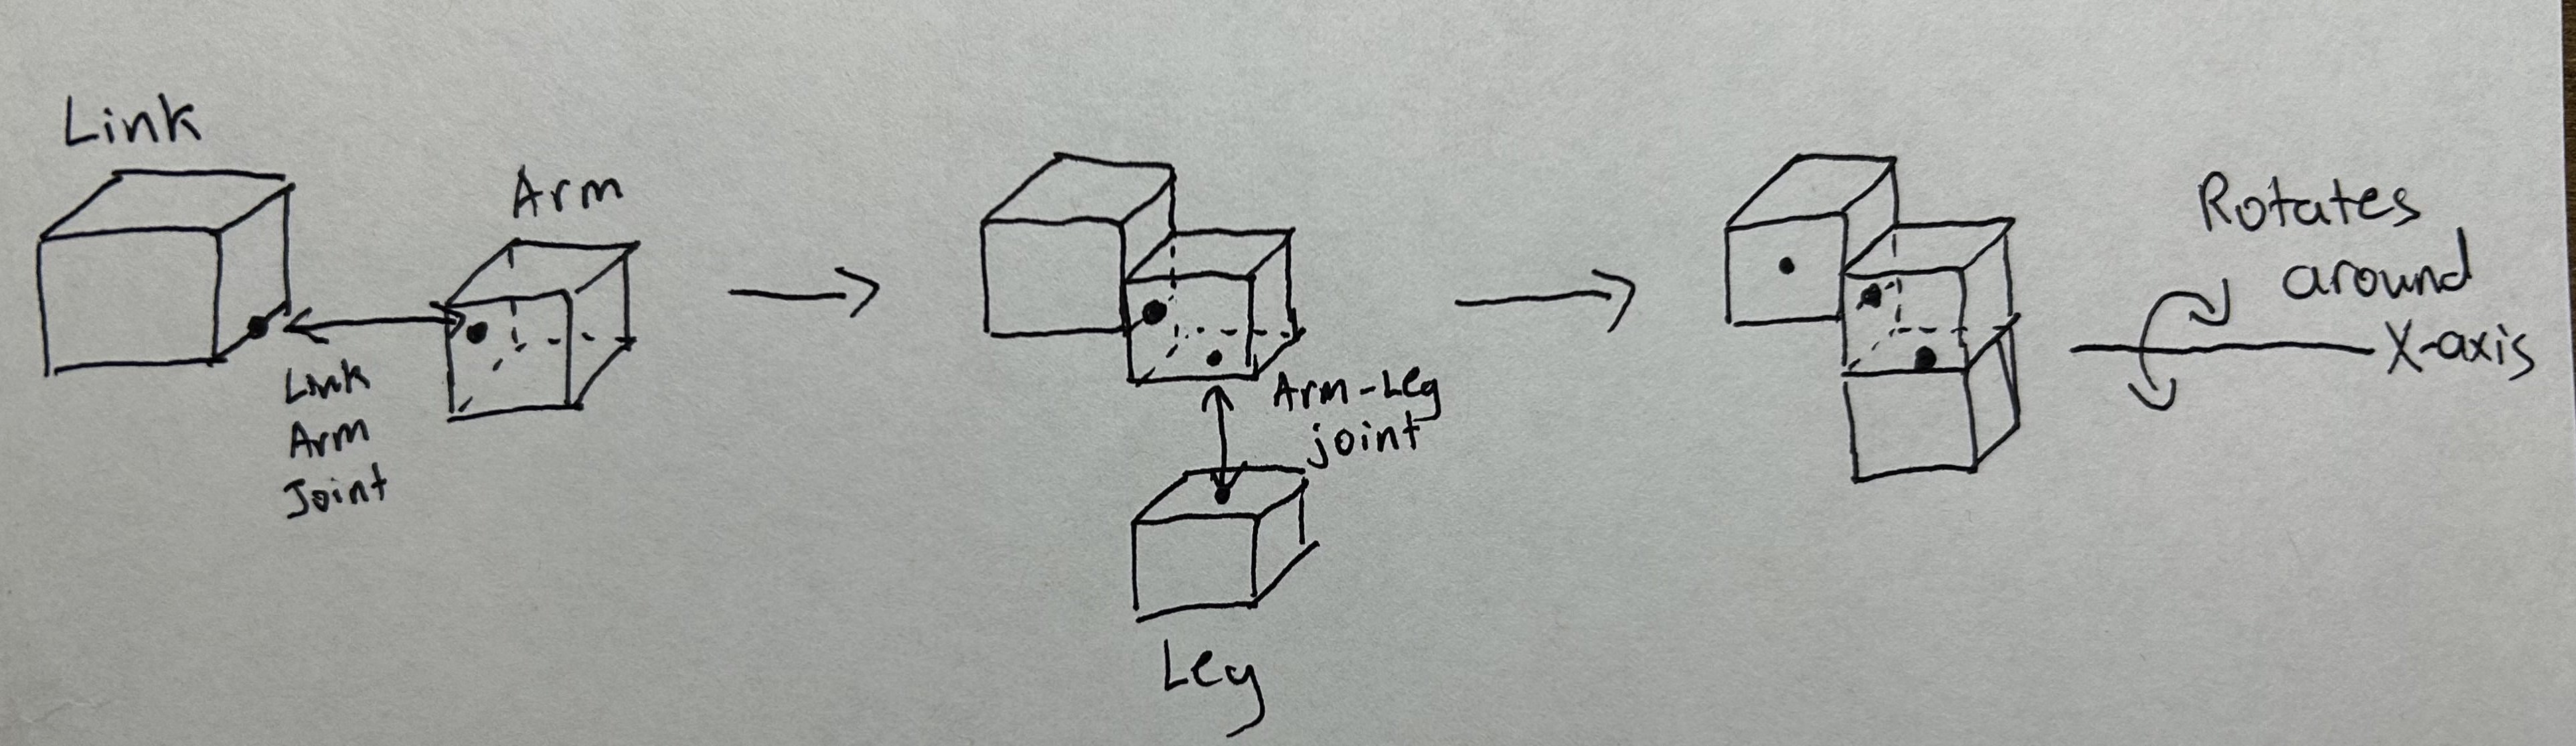 Link
Arm
Link
Arm
Joint
Arm-Leg
joint
Leg
Rotates
around
X-axis